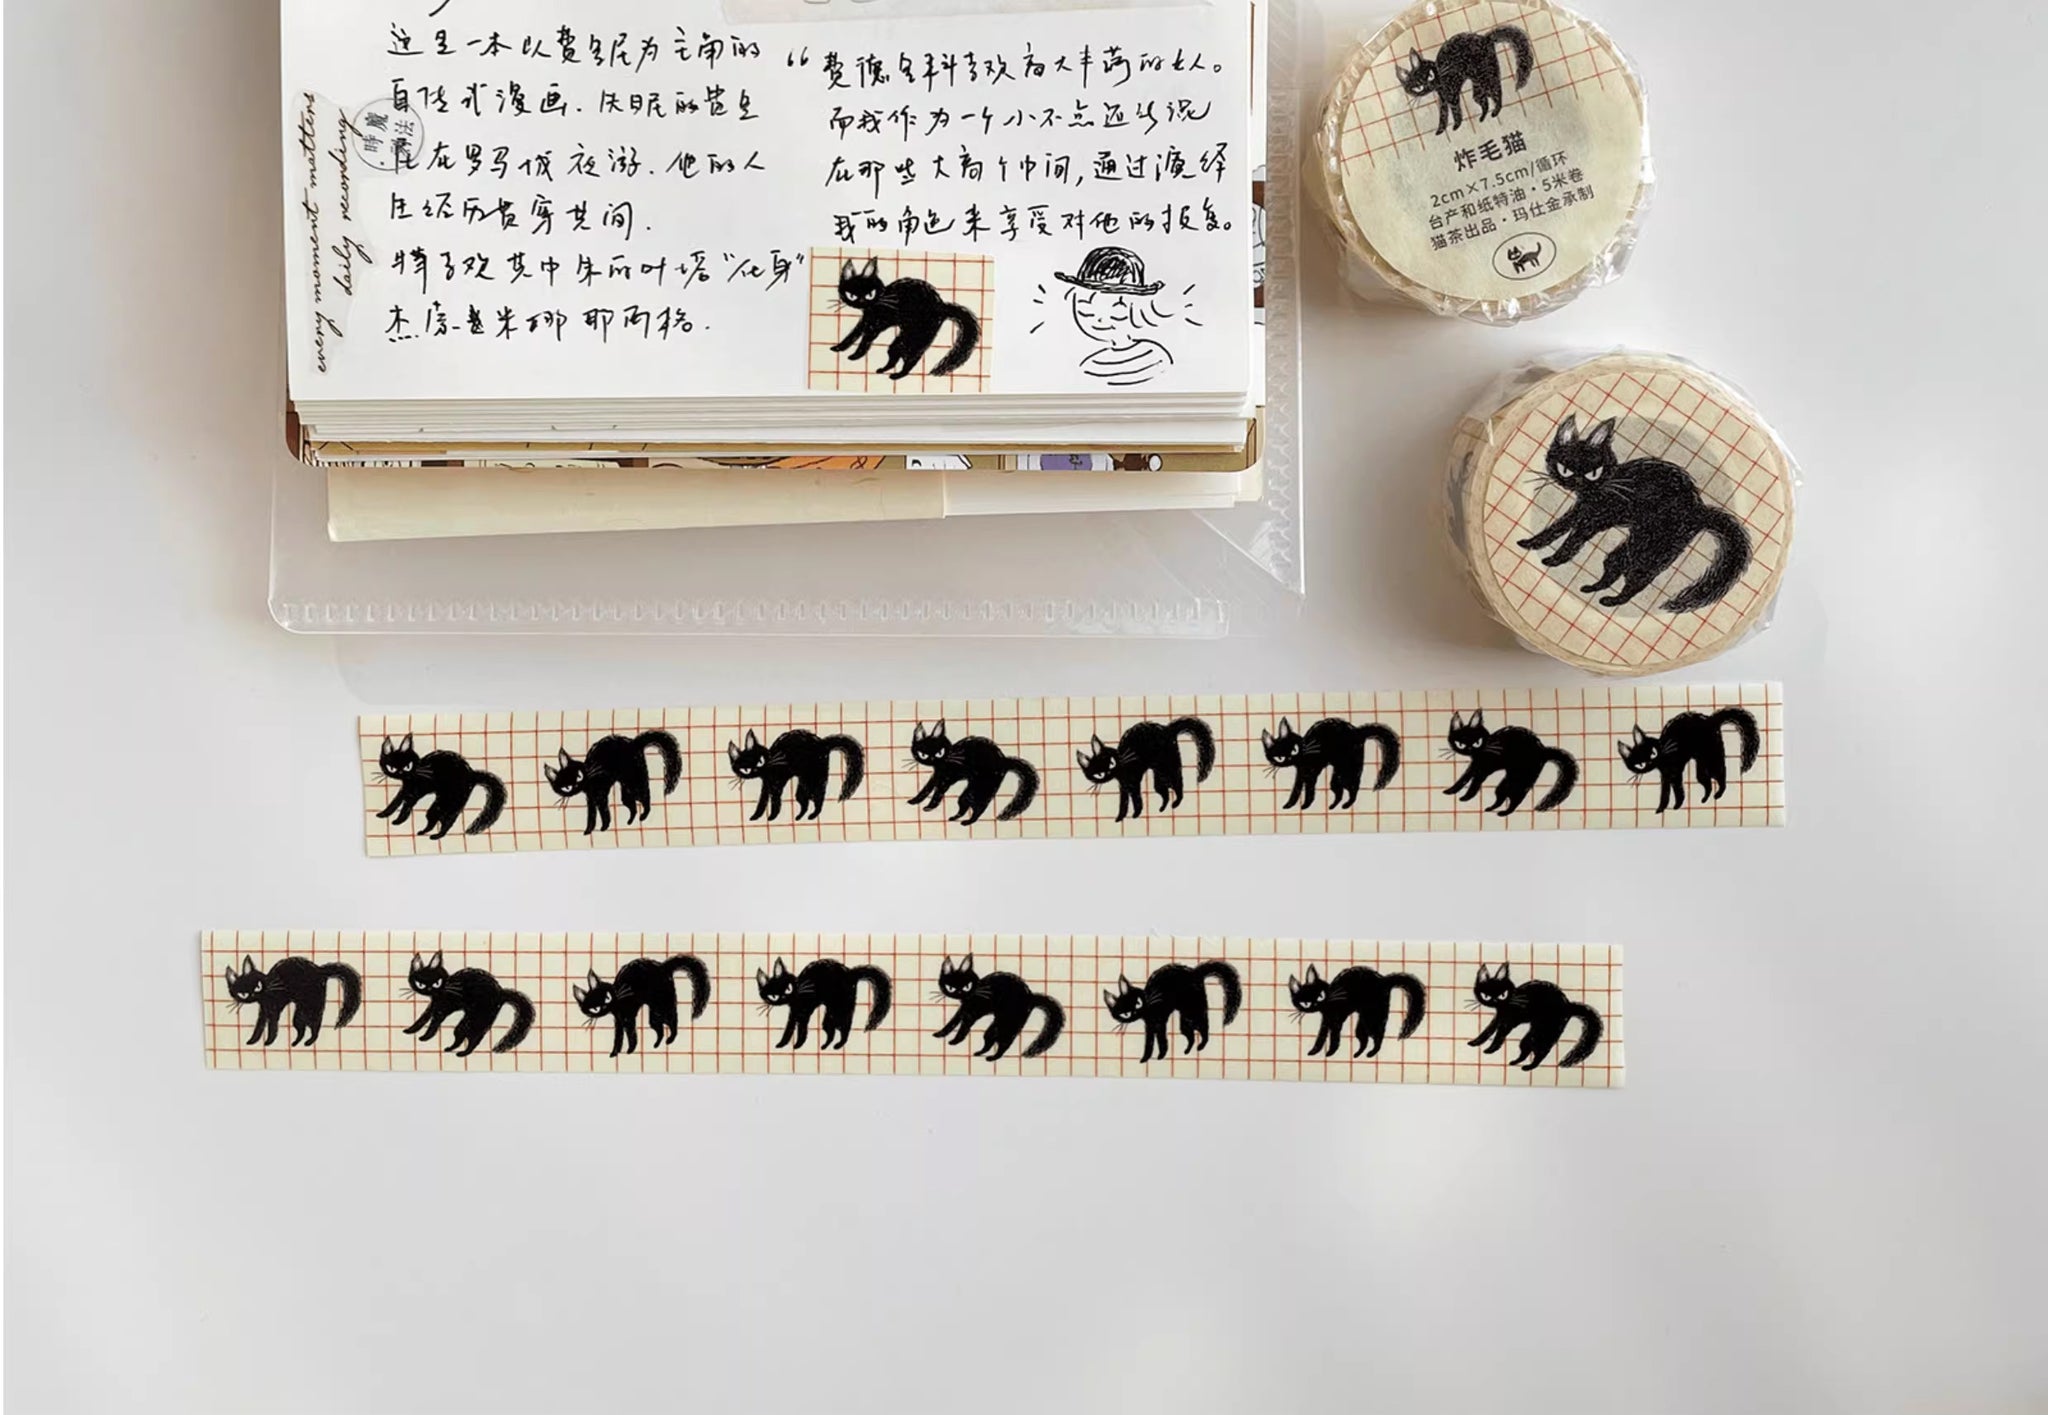 这是一本以费里尼为主角的
自传式漫画.失眠的费里
尼在罗马城夜游.他的人
生经历贯穿其间.
特喜欢其中朱丽叶塔"化身"
杰索米娜那两格.
"费德里科喜欢高大丰满的女人。
而我作为一个小不点迷失说
在那些大高个中间,通过演绎
我的角色来享受对他的报复。
every moment matters
daily recording
魔法
时
炸毛猫
2cm×7.5cm/循环
台产和纸特油·5米卷
猫茶出品·玛仕金承制